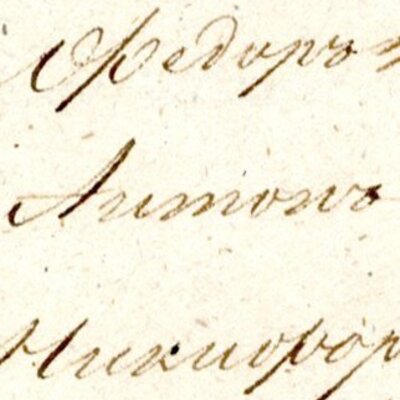 Ѳедоръ
Антонъ
Никифор